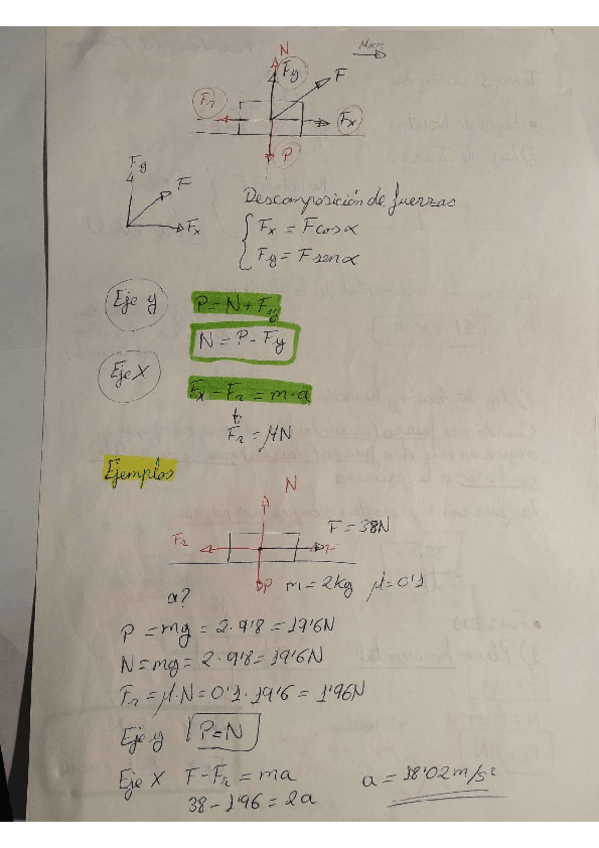 N
Fy
F
Fr
Fx
P
Fy
F
Fx
Descomposición de fuerzas
Fx = Fcosα
Fy = Fsenα
Eje y P = N + Fy
N = P - Fy
Eje X Fx - Fr = m·a
Fr = μN
Ejemplos
N
F = 38N
Fr
F
P
m = 2kg μ = 0'1
a?
P = mg = 2·9'8 = 19'6N
N = mg = 2·9'8 = 19'6N
Fr = μ·N = 0'1·19'6 = 1'96N
Eje y P = N
Eje X F - Fr = ma a = 18'02 m/s²
38 - 1'96 = 2a